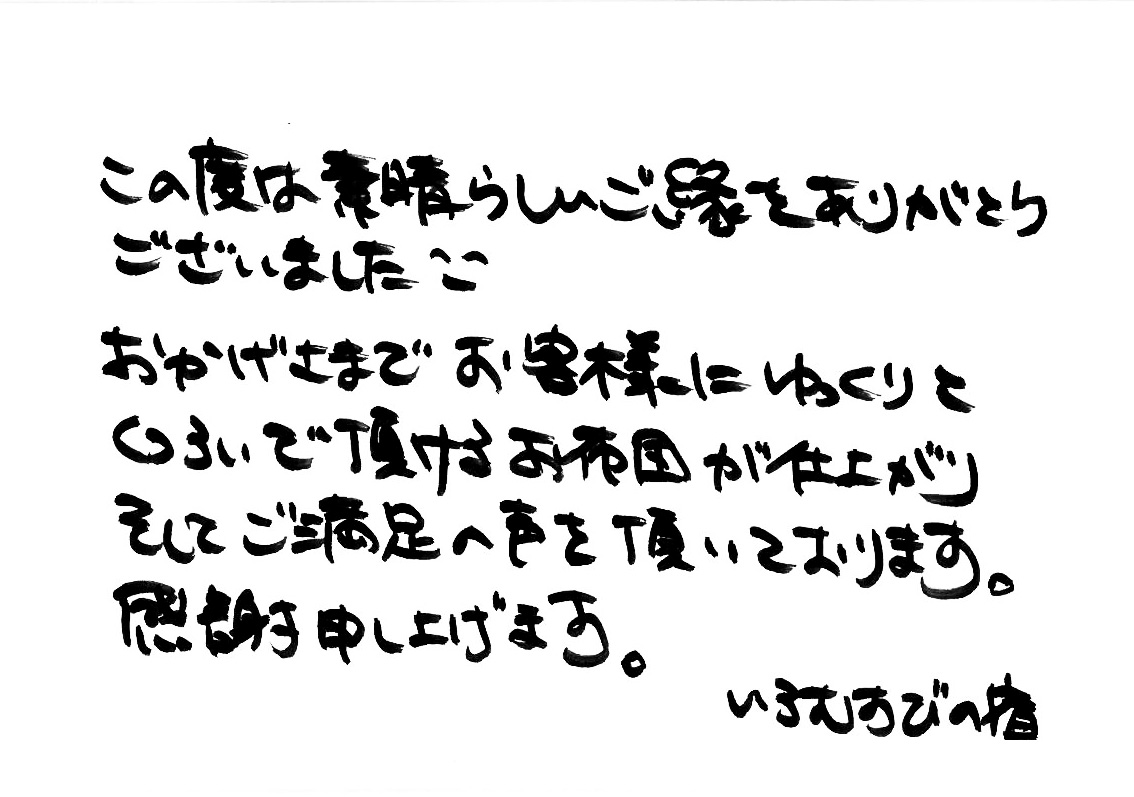 この度は素晴らしいご縁をありがとう
ございました
おかげさまで お客様に ゆっくりと
くつろいで頂けるお布団が仕上がり
そしてご満足の声を頂いております。
感謝申し上げます。
いろむすびの宿